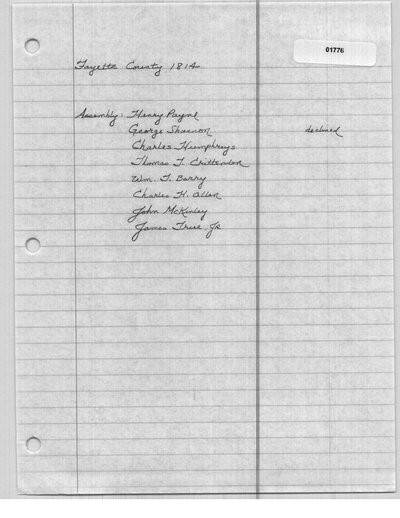 01776
Fayette County 1814
Assembly: Henry Payne
George Shannon declined
Charles Humphreys
Thomas T. Crittenden
Wm. T. Barry
Charles H. Allen
John McKinley
James True Jr